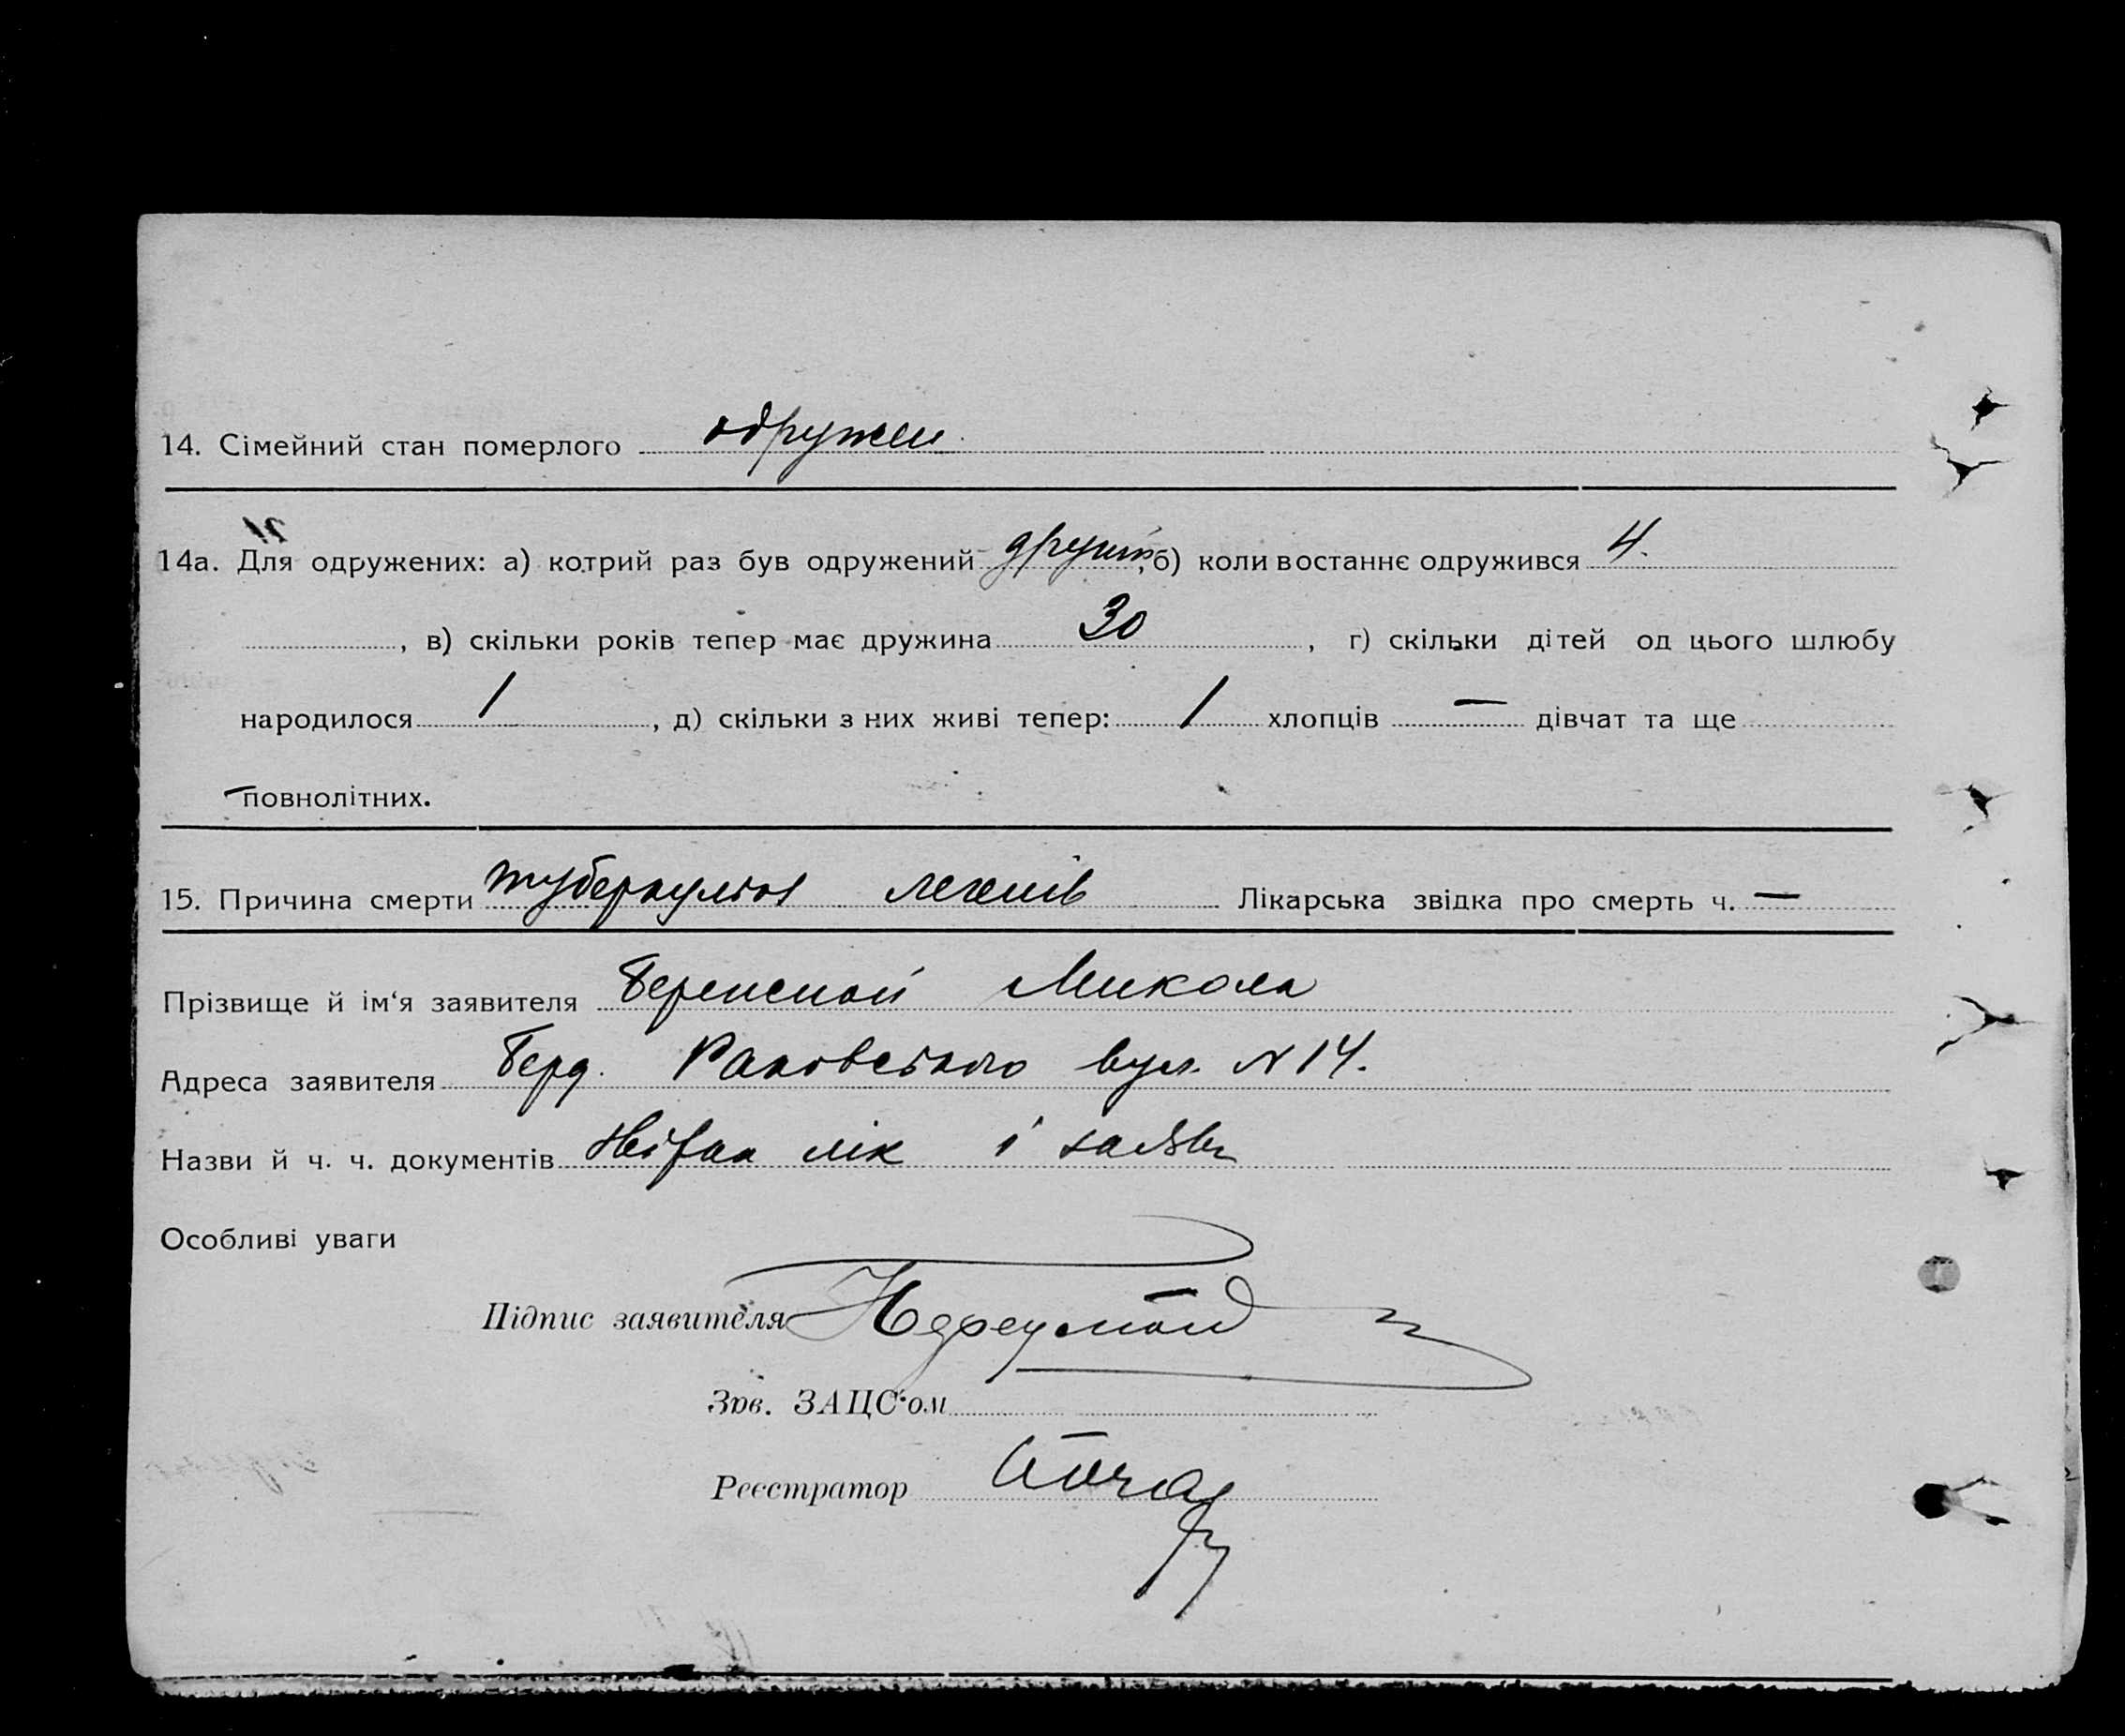 14. Сімейний стан померлого одружен
14а. Для одружених: а) котрий раз був одружений другий, б) коли востаннє одружився 4.
, в) скільки років тепер має дружина 30, г) скільки дітей од цього шлюбу
народилося 1, д) скільки з них живі тепер: 1 хлопців — дівчат та ще
— повнолітних.
15. Причина смерти туберкульоз легенів Лікарська звідка про смерть ч. —
Прізвище й ім‘я заявителя Микола
Адреса заявителя Берд. Раковського вул. N 14.
Назви й ч. ч. документів лік і заява
Особливі уваги
Підпис заявителя
Зав. ЗАЦС‘ом
Реєстратор